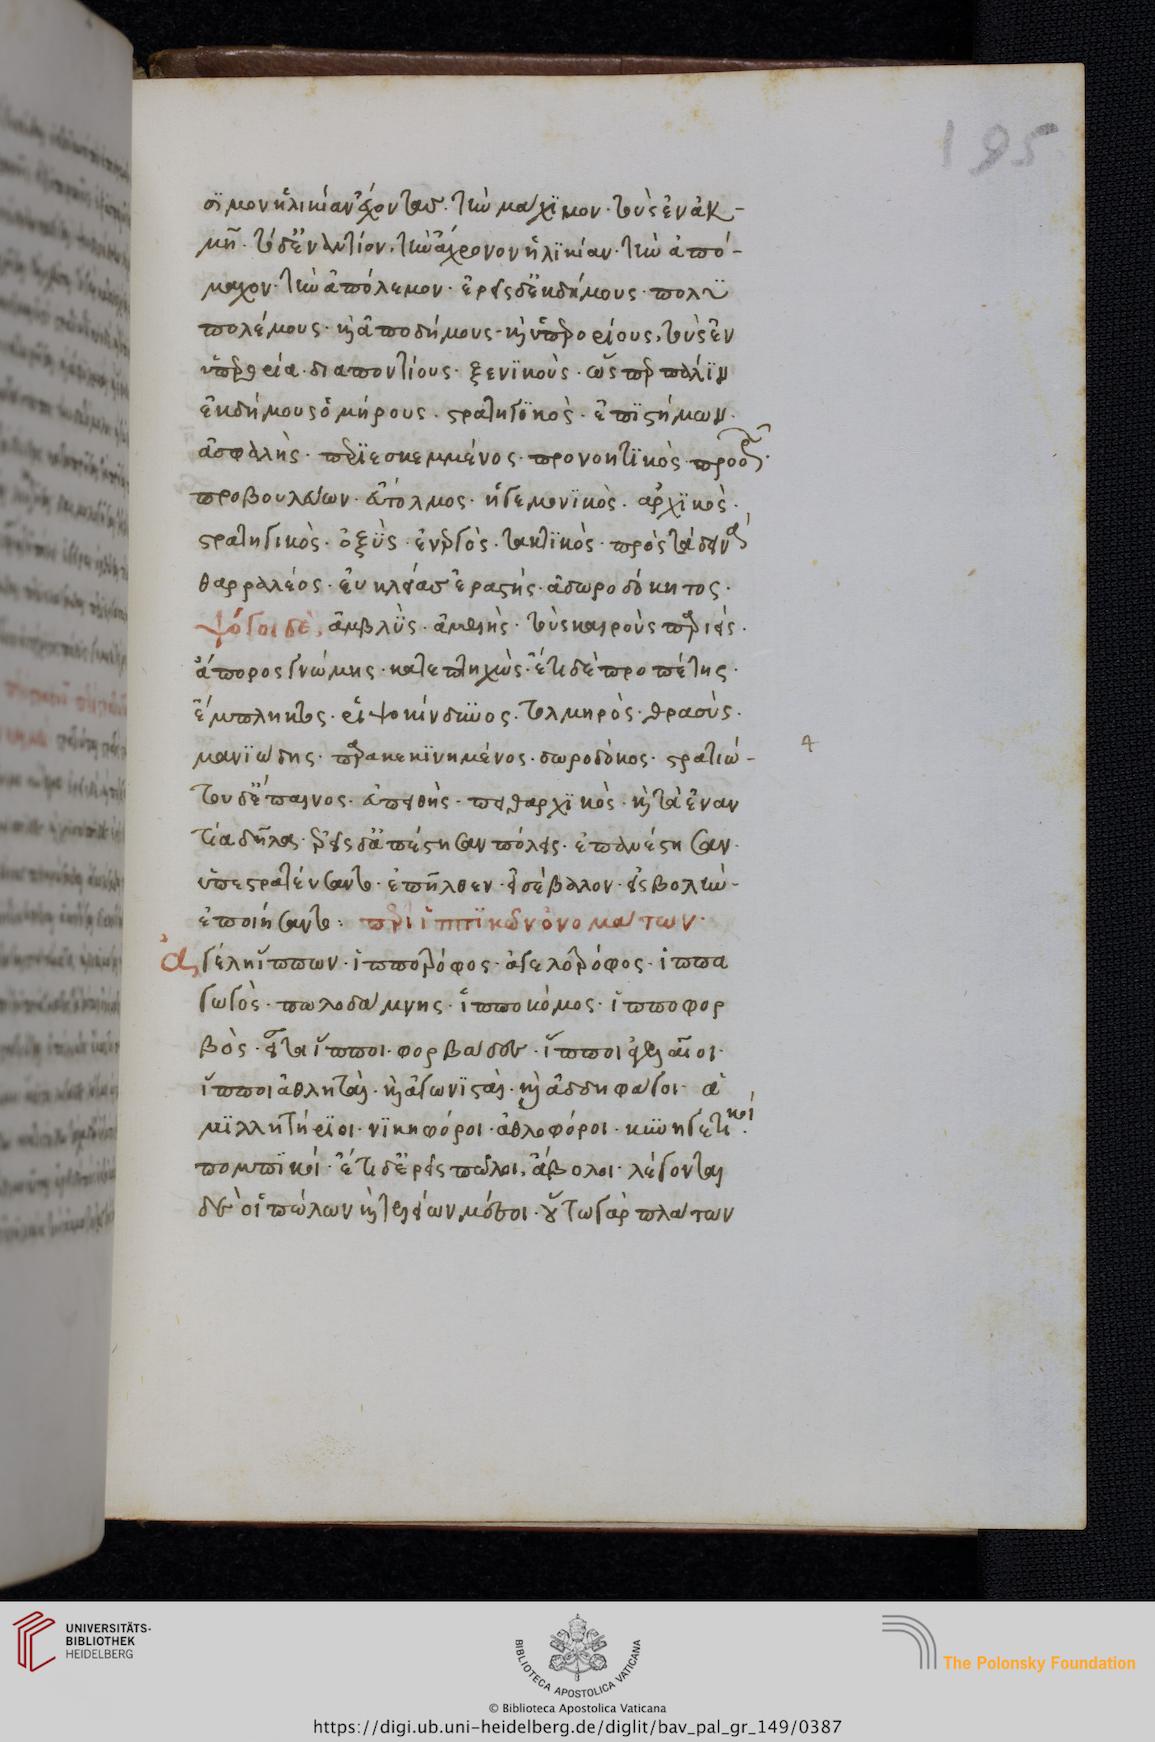 195
σϊμον ἡλικίαν ἔχοντας. τὴν μάχϊμον. τοὺς ἐν ἀκ-
μῇ. τὸ δ' ἐναντίον, τὴν ἄχρονον ἡλϊκίαν. τὴν ἀπό-
μαχον. τὴν ἀπόλεμον. ἐρεῖς δ' ἐκδήμους
πολέμους. καὶ ἀποδήμους. καὶ ὑπερορίους, τοὺς ἐν
ὑπερορία. διαποντίους. ξενϊκοὺς. ὡς
ἐκδήμους ὁμήρους. στρατηγϊκὸς. ἐπϊστήμων.
ἀσφαλὴς. περϊεσκεμμένος. προνοητϊκὸς.
προβουλεύων. εὔτολμος. ἡγεμονϊκὸς. ἀρχϊκὸς.
στρατηγικὸς. ὀξὺς. ἐνεργὸς. τακτϊκὸς. πρὸς τὰ δεινὰ
θαρραλέος. εὐκλείας ἐραστής. ἀδωροδόκητος.
ψόγοι δὲ, ἀμβλὺς. ἀμελὴς. τοὺς καιροὺς παριείς.
ἄπορος γνώμης. κατεπτηχὼς. ἔτι δὲ προπέτης.
ἔμπληκτος. ῥιψοκίνδυνος. τολμηρὸς. θρασύς.
μανϊώδης. παρακεκϊνημένος. δωροδόκος. στρατιώ-
του δ' ἔπαινος. εὐπειθὴς. πειθαρχϊκὸς. καὶ τὰ ἐναν
τία δῆλα. ἐρεῖς δ' ἀπέστησαν πόλεις. ἐπανέστησαν.
ὑπεστρατεύσαντο. ἐπῆλθεν. εἰσέβαλλον. εἰσβολὴν
ἐποιήσαντο: περὶ ἱππϊκῶν ὀνομάτων.
ἀγέλη ἵππων. ἱπποτρόφος. ἀγελοτρόφος. ἱππα
γωγὸς. πωλοδάμνης. ἱπποκόμος. ἱπποφορ
βὸς. εἶτα ἵπποι. φορβάδες. ἵπποι
ἵπποι ἀθληταὶ. καὶ ἀγωνϊσταὶ. καὶ ἀδδηφάγοι. ἁ
μϊλλητήρϊοι. νϊκηφόροι. ἀθλοφόροι. κυνηγετικοί.
πομπϊκοί. ἔτι δ' ἐρεῖς πῶλοι, ἄβολοι. λέγονται
δὲ οἱ πώλων καὶ τελείων μέσοι. οὕτω γὰρ πλάτων
4
UNIVERSITÄTS-
BIBLIOTHEK
HEIDELBERG
BIBLIOTECA APOSTOLICA VATICANA
The Polonsky Foundation
© Biblioteca Apostolica Vaticana
https://digi.ub.uni-heidelberg.de/diglit/bav_pal_gr_149/0387